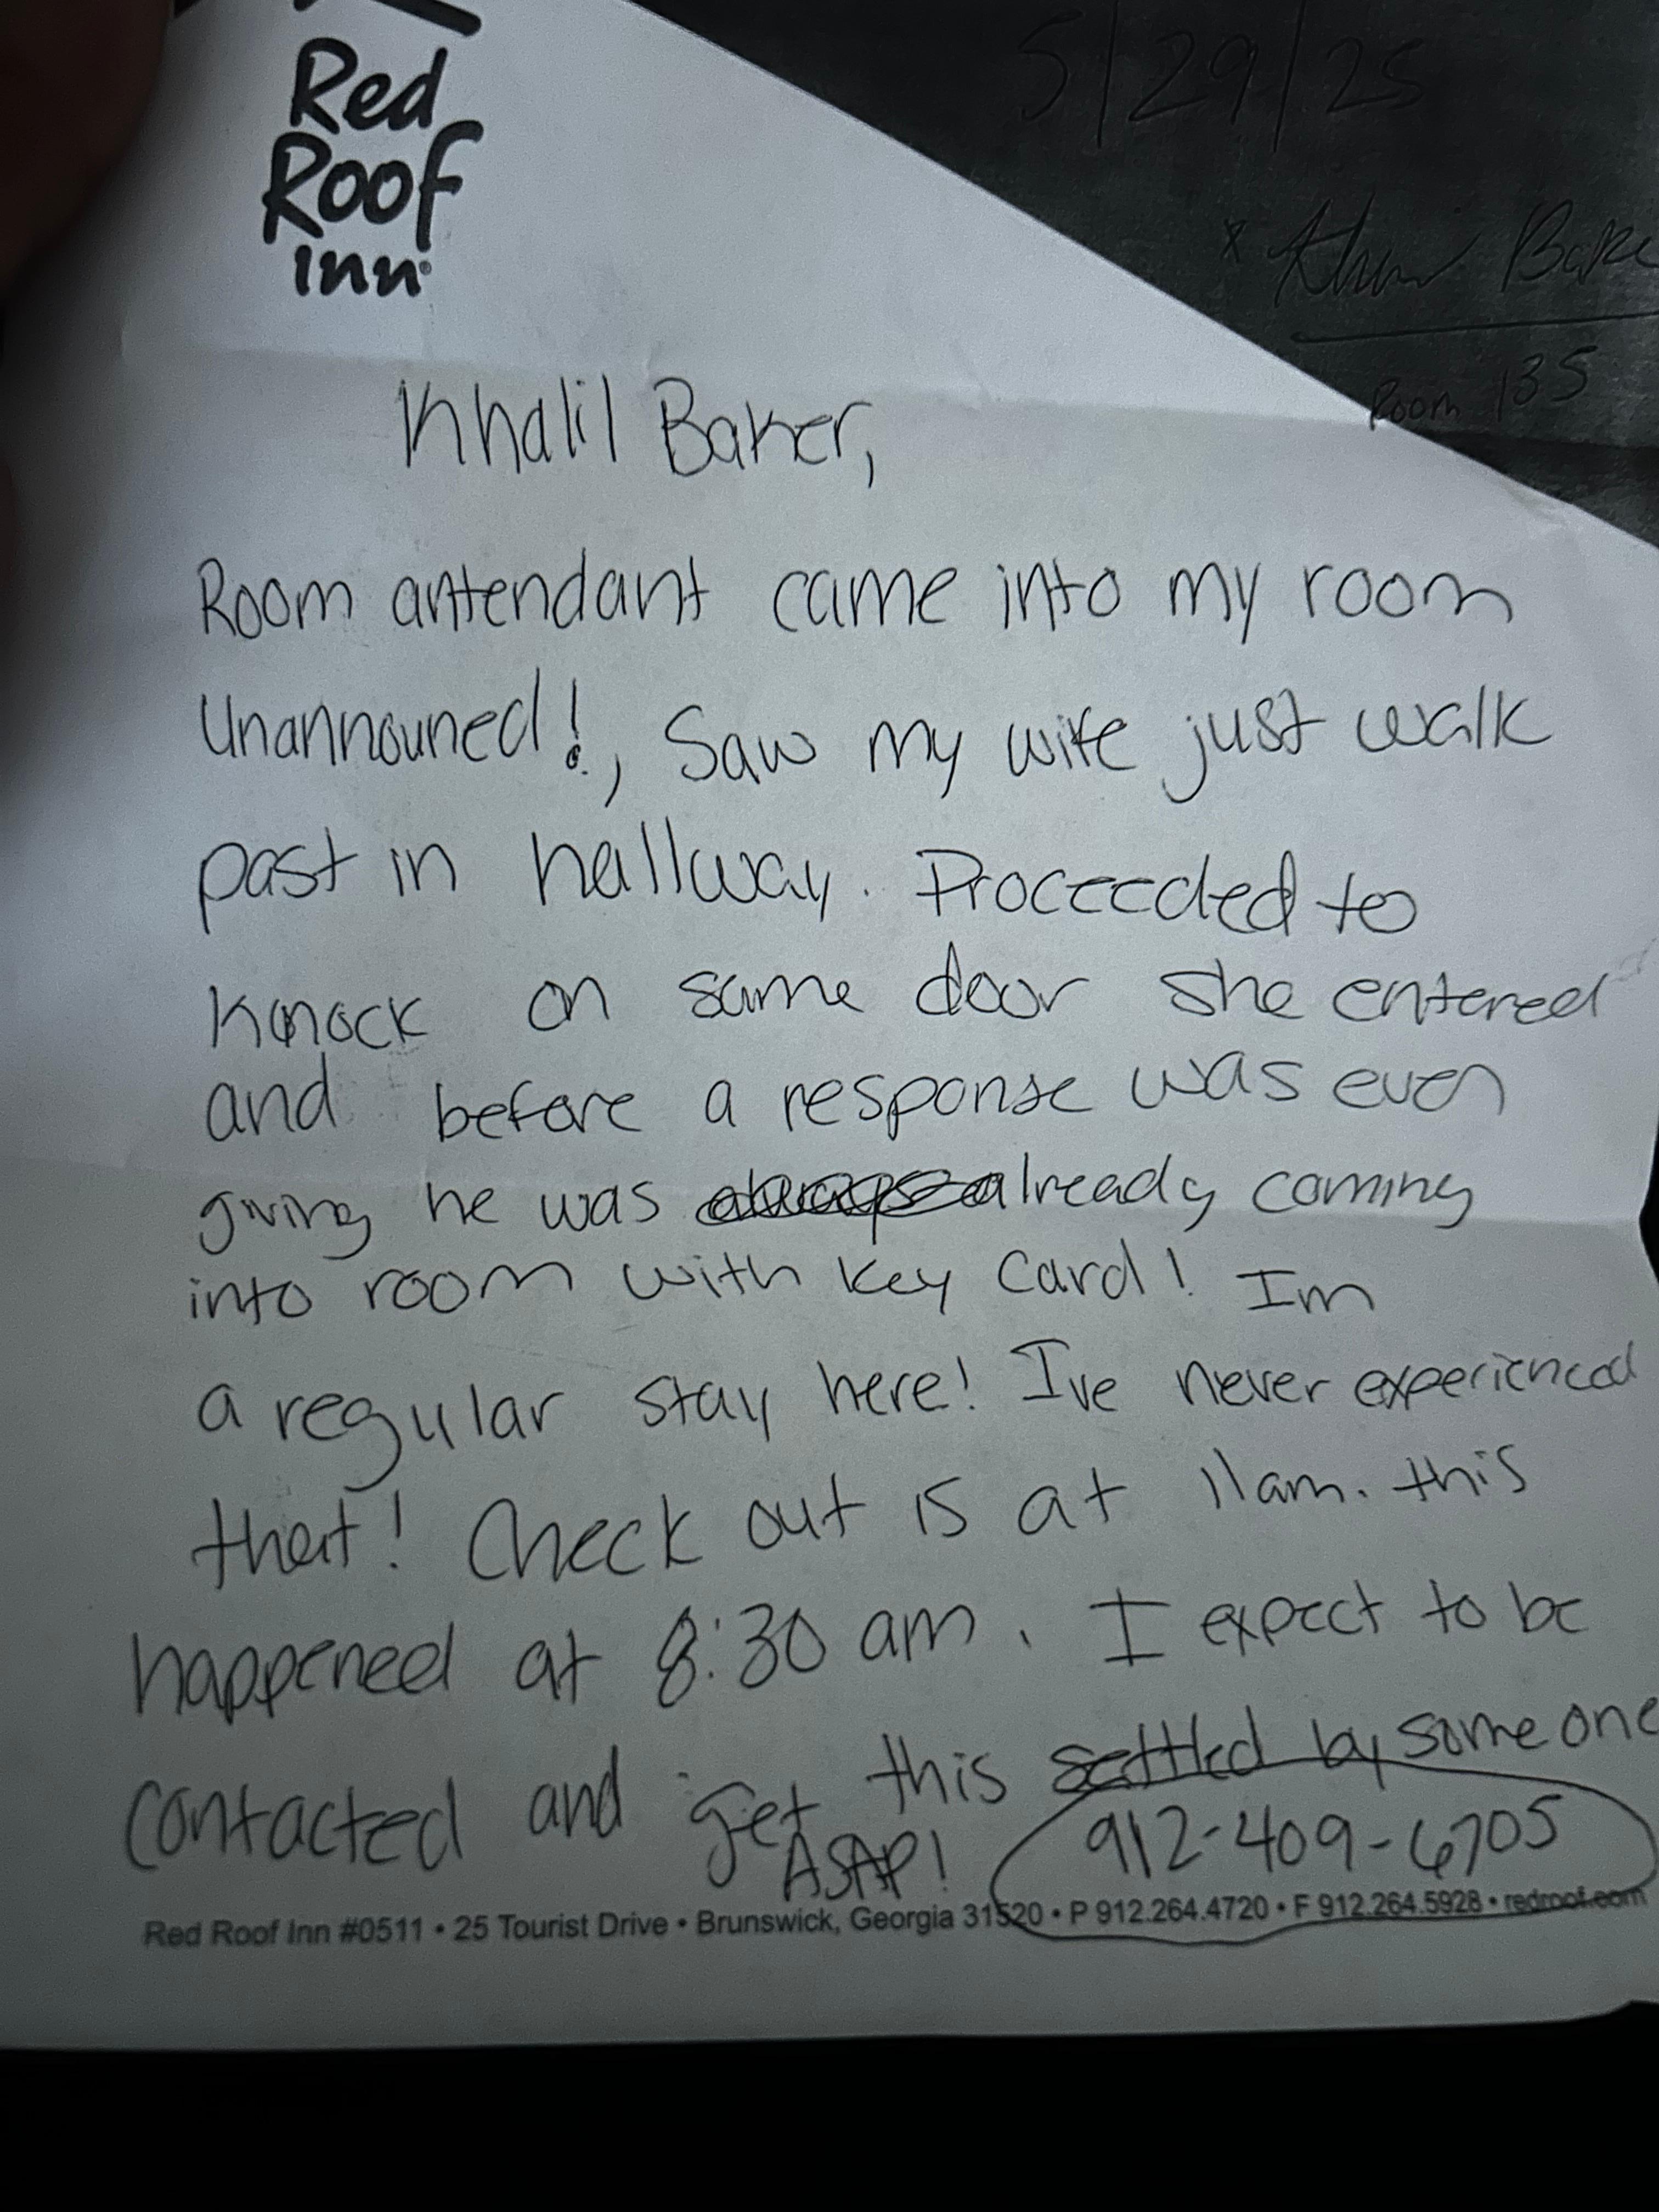 Red
Roof
Inn®
5/29/25
x Bake
Room 135
Khalil Baker,
Room antendant came into my room
Unannouned!, Saw my wife just walk
past in hallway. Proceeded to
Knock on same door she entered
and before a response was even
giving he was already coming
into room with key card! Im
a regular stay here! I've never experienced
that! Check out is at 11am. this
happened at 8:30 am. I expect to be
contacted and get this settled by someone
ASAP! 912-409-6705
Red Roof Inn #0511 • 25 Tourist Drive • Brunswick, Georgia 31520 • P 912.264.4720 • F 912.264.5928 • redroof.com